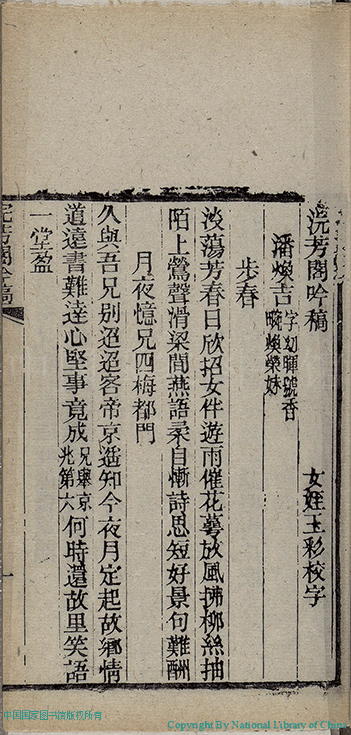 浣芳閣吟稿
女姪玉彩校字
潘煥吉 字幻暉號香畹煥榮妹
步春
淡蕩芳春日欣招女伴遊雨催花蕚放風拂柳絲抽
陌上鶯聲滑梁間燕語柔自慚詩思短好景句難酬
月夜憶兄四梅都門
久與吾兄別迢迢客帝京遥知今夜月定起故鄉情
道遠書難達心堅事竟成 兄舉京兆第六 何時還故里笑語
一堂盈
浣芳閣吟稿
一
中国国家图书馆版权所有
Copyright By National Library of China